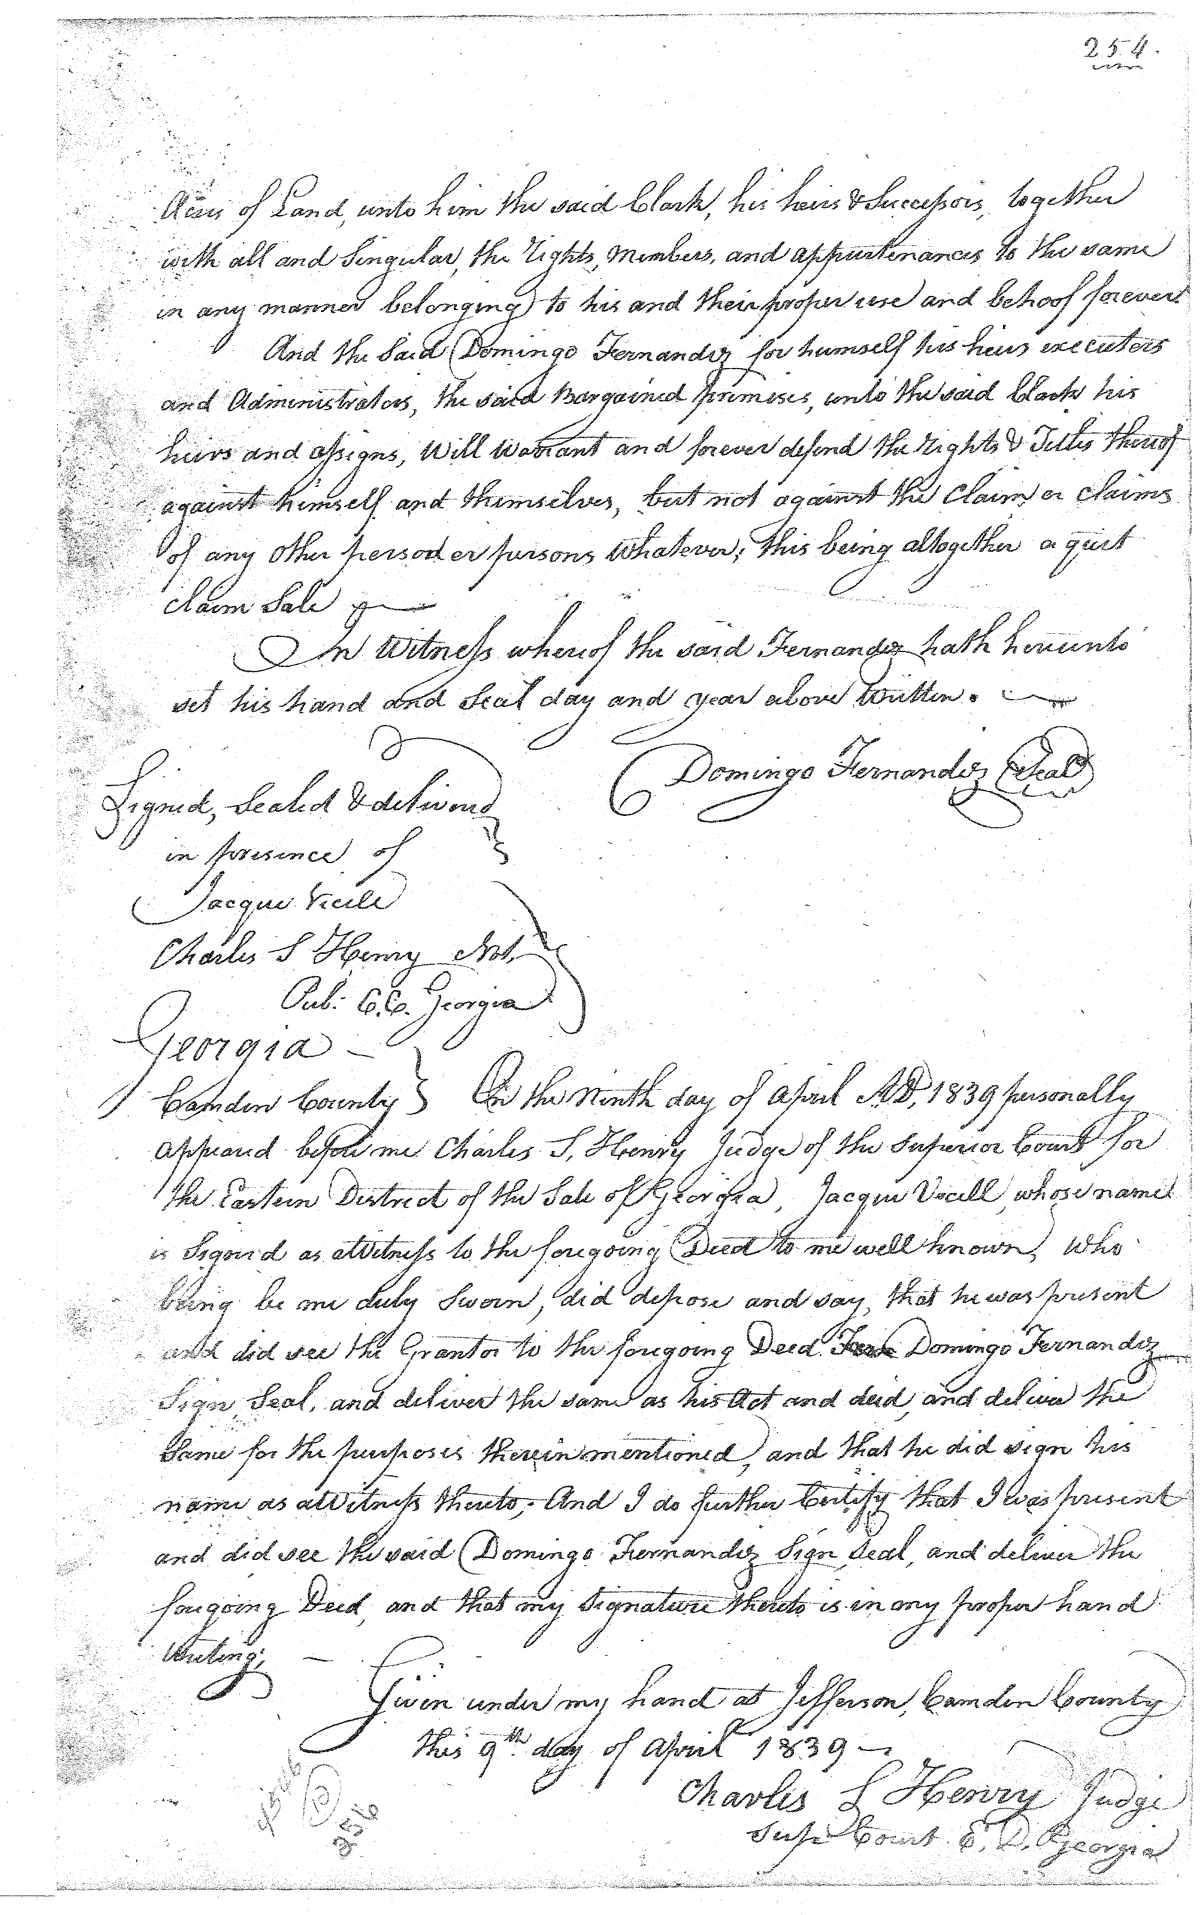 254.
Acres of Land, unto him the said Clark, his heirs & Successors, together
with all and Singular, the rights, members, and appurtenances to the same
in any manner belonging to his and their proper use and behoof forever
And the Said Domingo Fernandez for humself his heirs executers
and Administrators, the said Bargained premises, unto the said Clark his
heirs and assigns, Will Warrant and forever defend the Rights & Titles thereof
against himself and themselves, but not against the claim or claims
of any other person or persons whatever; this being altogether a quit
claim Sale
In Witness whereof the said Fernandez hath hereunto
set his hand and Seal day and year above Written.
Domingo Fernandez Seal
Signed, Sealed & delivered
in presence of
Jacque
Charles S Henry Not,
Pub: C.C. Georgia
Georgia
Camden County } On the Ninth day of April A.D, 1839 personally
appeard before me Charles S. Henry Judge of the Superior Court for
the Eastern District of the Sate of Georgia, Jacque whose name
is Signed as a Witness to the foregoing Deed to me well known, who
being be me duly Sworn, did depose and say, that he was present
and did see the Grantor to the foregoing Deed Domingo Fernandez
Sign, Seal, and deliver the same as his Act and deed, and deliver the
Same for the purposes therein mentioned, and that he did sign his
name as a Witness thereto, And I do further Certify that I was present
and did see the said Domingo Fernandez Sign, Seal, and deliver the
foregoing Deed, and that my Signature thereto is in my proper hand
Writing;
Given under my hand at Jefferson, Camden County
this 9th day of April 1839
Charles S Henry Judge
Supr Court E. D. Georgia